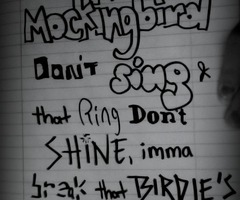 Mockingbird
Don't sing &
that Ring Dont
SHINE, imma
break that BIRDIE'S